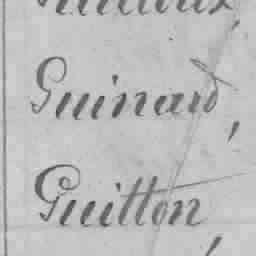 Guinard,
Guitton,